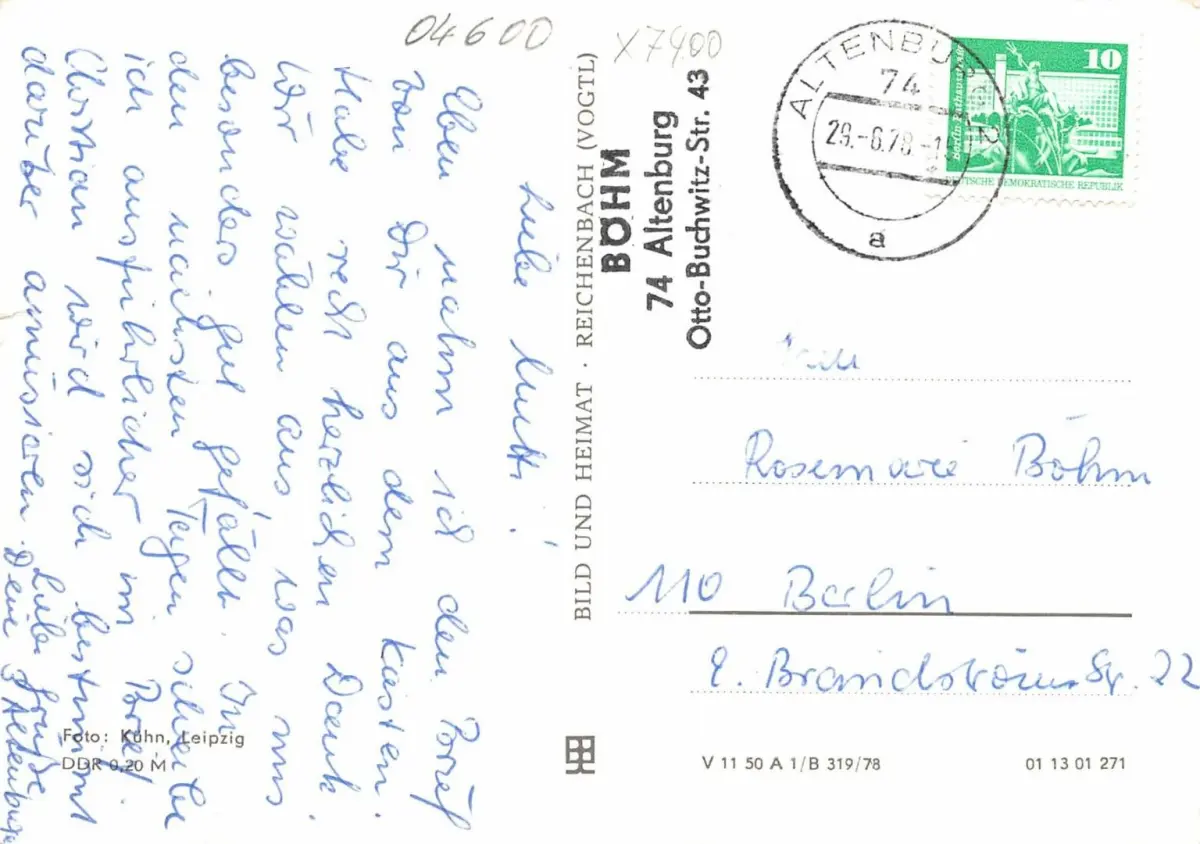 04600
X7400
Liebe Mutti!
Eben nahm ich den Brief
von Dir aus dem Kasten.
Habe recht herzlichen Dank
Wir wählen aus was uns
besonders gut gefällt. In
den nächsten Tagen schreibe
ich ausführlicher im Brief.
Christian wird sich bestimmt
darüber amüsieren
Liebe Grüße
Deine 3 Altenburger
Foto: Kühn, Leipzig
DDR 0,20 M
BILD UND HEIMAT · REICHENBACH (VOGTL)
BÖHM
74 Altenburg
Otto-Buchwitz-Str. 43
ALTENBURG 2
74
29.-6.78.-
a
10
Berlin, Rathausstraße
DEUTSCHE DEMOKRATISCHE REPUBLIK
Rosemarie Böhm
110 Berlin
E. Brandströms Str. 22
V 11 50 A 1/B 319/78
01 13 01 271